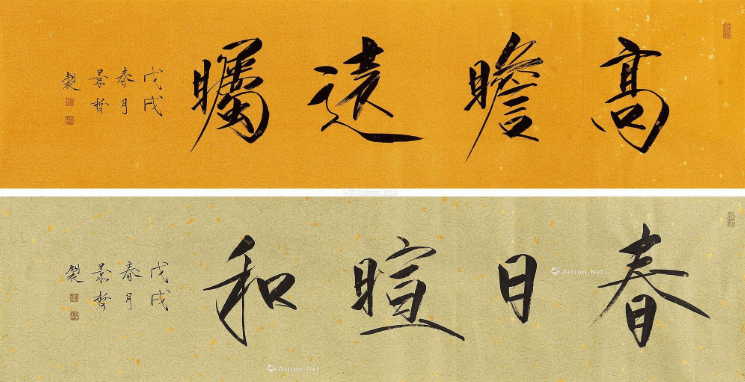 高瞻遠矚
戊戌
春月
景哲
製
春日暄和
戊戌
春月
景哲
製
Artron.Net
Artron.Net